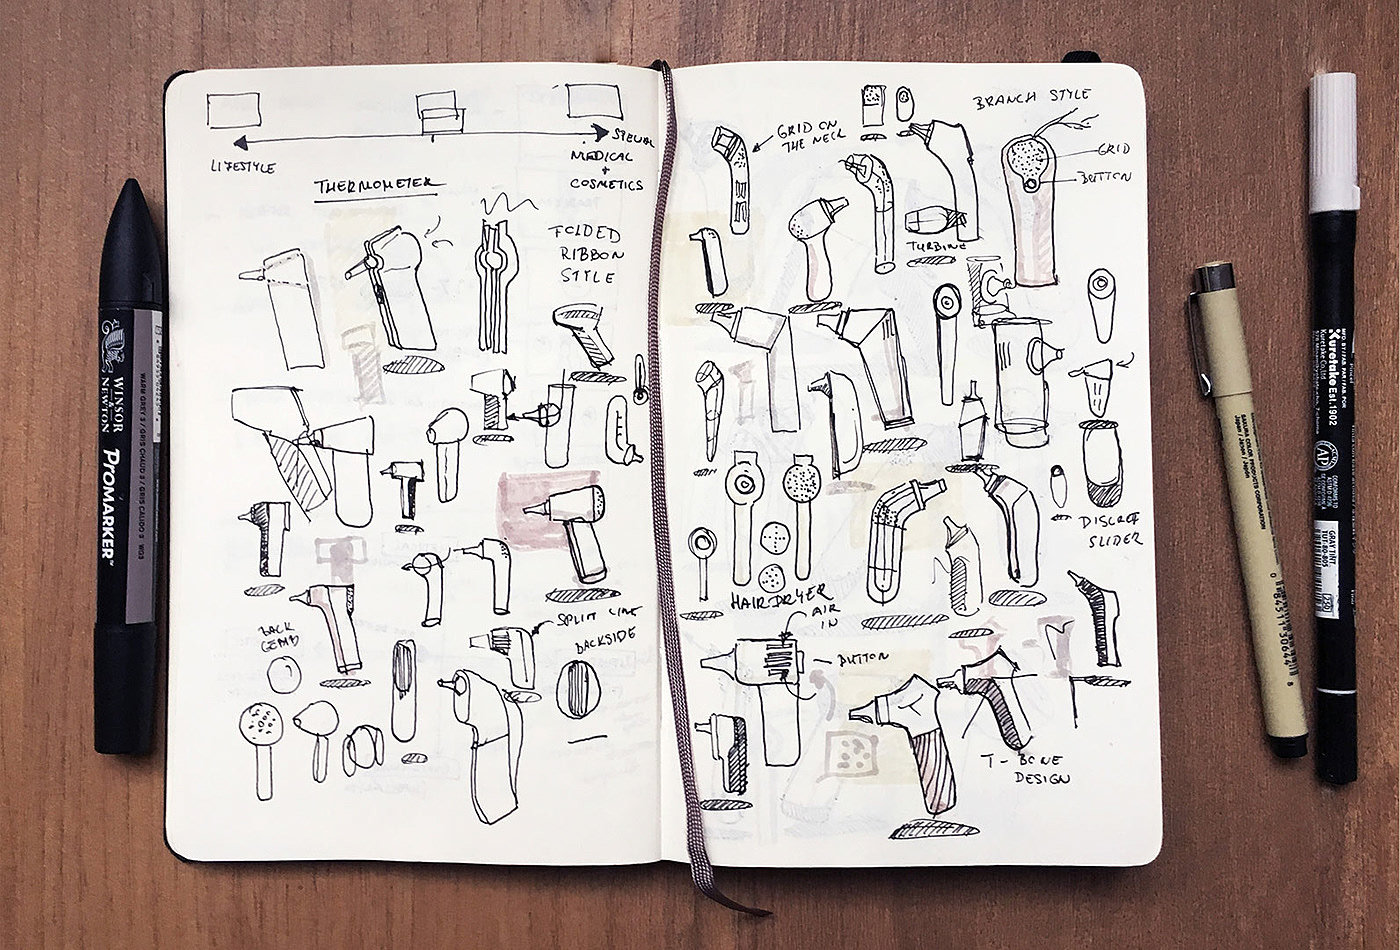 LIFESTYLE
MEDICAL
+
COSMETICS
THERMOMETER
FOLDED
RIBBON
STYLE
SPLIT LINE
BACKSIDE
BACK
GRID ON
THE NECK
BRANCH STYLE
GRID
BUTTON
TURBINE
DISCRET
SLIDER
HAIRDRYER
AIR
IN
BUTTON
T-BONE
DESIGN
WINSOR
& NEWTON
PROMARKER™
WARM GREY 3 / GRIS CHAUD 3 / GRIS CALIDO 3 / WG3
SAKURA COLOR PRODUCTS CORPORATION
Kuretake Est.1902
Kuretake Co.,Ltd
AP
GRAY TINT